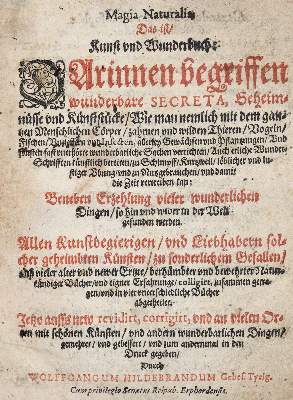 Magia Naturalis,
Das ist/
Kunst vnd Wunderbuch:
Darinnen begriffen
wunderbare SECRETA, Geheim-
nüsse vnd Kunststücke/ Wie man nemlich mit dem gan-
tzen Menschlichen Cörper/ zahmen vnd wilden Thieren/ Vogeln/
Fischen/ allerley Gewächsen vnd Pflantzungen/ Vnd
fast vnerhörte wunderbarliche Sachen verrichten/ Auch etliche Wunder-
Schrifften künstlich bereiten/ zu Schimpff/ Kurtzweil/ löblicher vnd lu-
stiger Vbung/ vnd zu Nutz gebrauchen/ vnd damit
die Zeit vertreiben kan:
Beneben Erzehlung vieler wunderlichen
Dingen/ so hin vnd wider in der Welt
gefunden werden.
Allen Kunstbegierigen/ vnd Liebhabern sol-
cher geheimbten Künsten/ zu sonderlichem Gefallen/
Aus vieler alter vnd newer Ertzte/ berhümbter vnd bewehrter Natur-
kündiger Bücher/ vnd eigner Erfahrunge/ colligirt, zusammen getra-
gen/ vnd in vier vnterschiedliche Bücher
abgetheilet.
Jetzo auffs new revidirt, corrigirt, vnd an vielen Or-
ten mit schönen Künsten/ vnd andern wunderbarlichen Dingen/
gemehret/ vnd gebessert/ vnd zum andernmal in den
Druck gegeben/
Durch
WOLFFGANGUM HILDEBRANDUM Gebes. Tyrig.
Cum privilegio Senatus Reipub. Erphordensis.